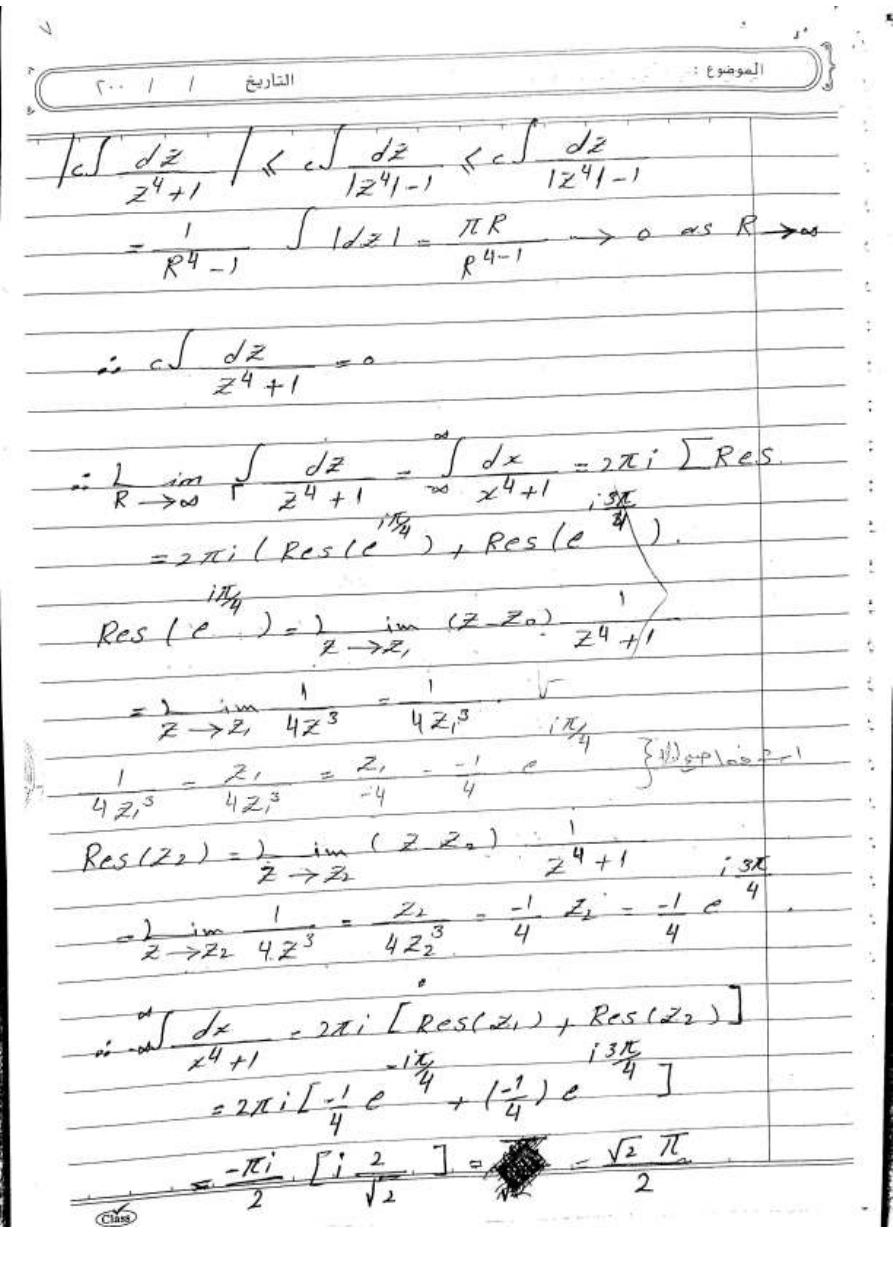 الموضوع : التاريخ / / ٢٠٠
|c∫ dz/(z⁴+1)| ≤ c∫ dz/(|z⁴|-1) ≤ c∫ dz/(|z⁴|-1)
= 1/(R⁴-1) ∫ |dz| = πR/R⁴⁻¹ → 0 as R → ∞
∴ c∫ dz/(z⁴+1) = 0
∴ Lim R→∞ ∫Γ dz/(z⁴+1) = ∫_{-∞}^{∞} dx/(x⁴+1) = 2πi ∑ Res.
= 2πi ( Res(e^{iπ/4}) + Res(e^{i3π/4}) ).
Res(e^{iπ/4}) = Lim z→z₁ (z-z₀) 1/(z⁴+1)
= Lim z→z₁ 1/(4z³) = 1/(4z₁³) .
1/(4z₁³) = z₁/(4z₁³) = z₁/-4 = -1/4 e^{iπ/4}
Res(z₂) = Lim z→z₂ (z-z₂) 1/(z⁴+1)
= Lim z→z₂ 1/(4z³) = z₂/(4z₂³) = -1/4 z₂ = -1/4 e^{i3π/4} .
∴ ∫_{-∞}^{∞} dx/(x⁴+1) = 2πi [ Res(z₁) + Res(z₂) ]
= 2πi [ -1/4 e^{-iπ/4} + (-1/4) e^{i3π/4} ]
= -πi/2 [ i 2/√2 ] = = √2 π/2
Class